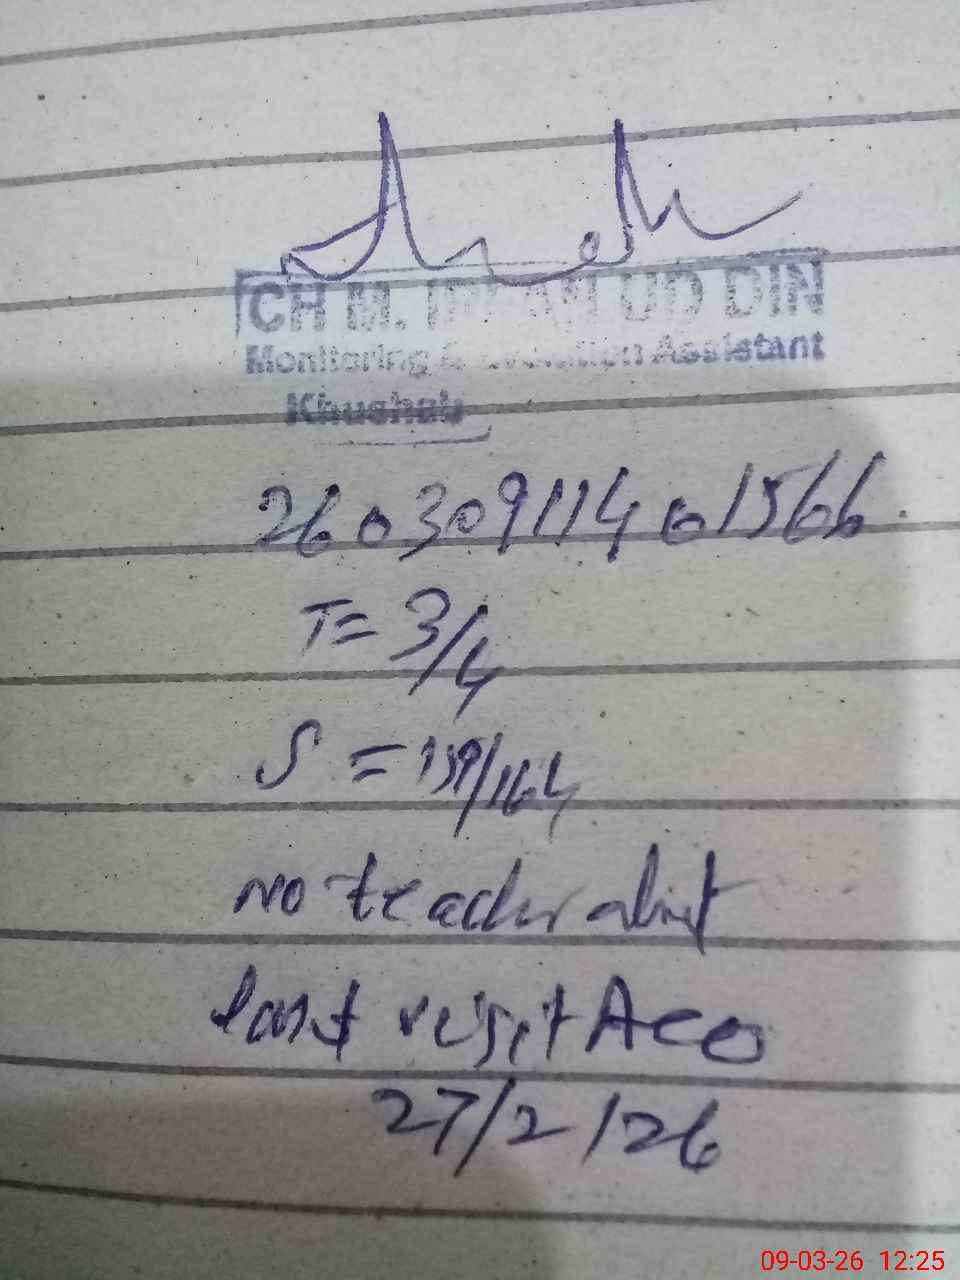 CH M. IRFAN UD DIN
Monitoring & Evaluation Assistant
Khushab
26030911401566.
T= 3/4
S = 139/164
no teacher absent
last visit AEO
27/2/26
09-03-26 12:25